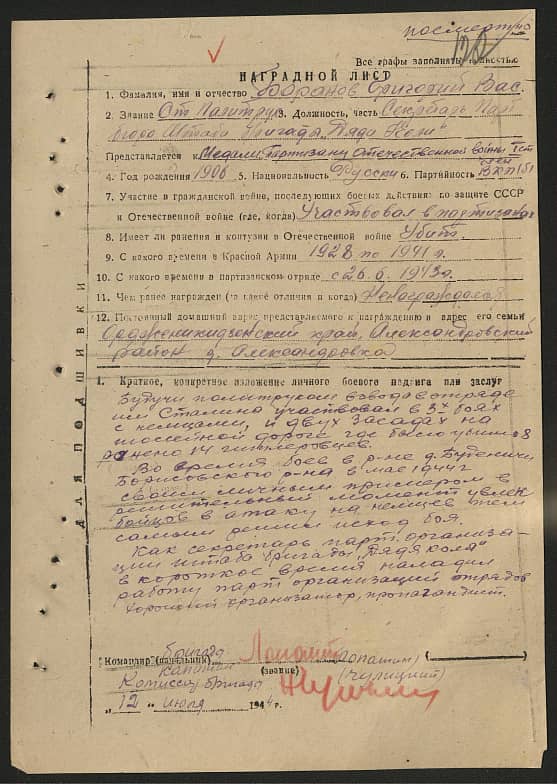 посмертно
Все графы заполнять полностью
НАГРАДНОЙ ЛИСТ
1. Фамилия, имя и отчество Баранов Григорий Вас.
2. Звание Ст. Политрук 3. Должность, часть Секретарь Парт
бюро Штаба бригады "Дяди Коли"
Представляется к Медали "Партизану Отечественной войны I ст
4. Год рождения 1906 5. Национальность Русски 6. Партийность Член ВКП(б)
7. Участие в гражданской войне, последующих боевых действиях по защите СССР
и Отечественной войне (где, когда) Участвовал в партизанах
8. Имеет ли ранения и контузии в Отечественной войне Убит.
9. С какого времени в Красной Армии 1928 по 1941 г.
10. С какого времени в партизанском отряде с 26.6.1943г.
11. Чем ранее награжден (за какие отличия и когда) Ненаграждался
12. Постоянный домашний адрес представляемого к награждению и адрес его семьи
Орджоникидзенский край, Александровский
район д. Александровка
ДЛЯ ПОДШИВКИ
1. Краткое, конкретное изложение личного боевого подвига или заслуг
Будучи политруком взвода в отряде
им Сталина участвовал в 3х боях
с немцами, и двух засадах на
шоссейной дороге где было убито 8
ранено 14 гитлеровцев.
Во время боев в р-не д. Бутеничи
Борисовского р-на в мае 1944 г
своим личным примером в
решительный момент увлек
бойцов в атаку на немцев тем
самым решил исход боя.
Как секретарь парт. организа-
ции штаба бригады "Дядя Коля"
в короткое время наладил
работу парт организаций отрядов
Хороший организатор, пропагандист.
бригады
"Командир (начальник) Лопатин (Лопатин)
капитан (звание)
Комиссар бригады (Чулицкий)
"12" июля 1944 г.